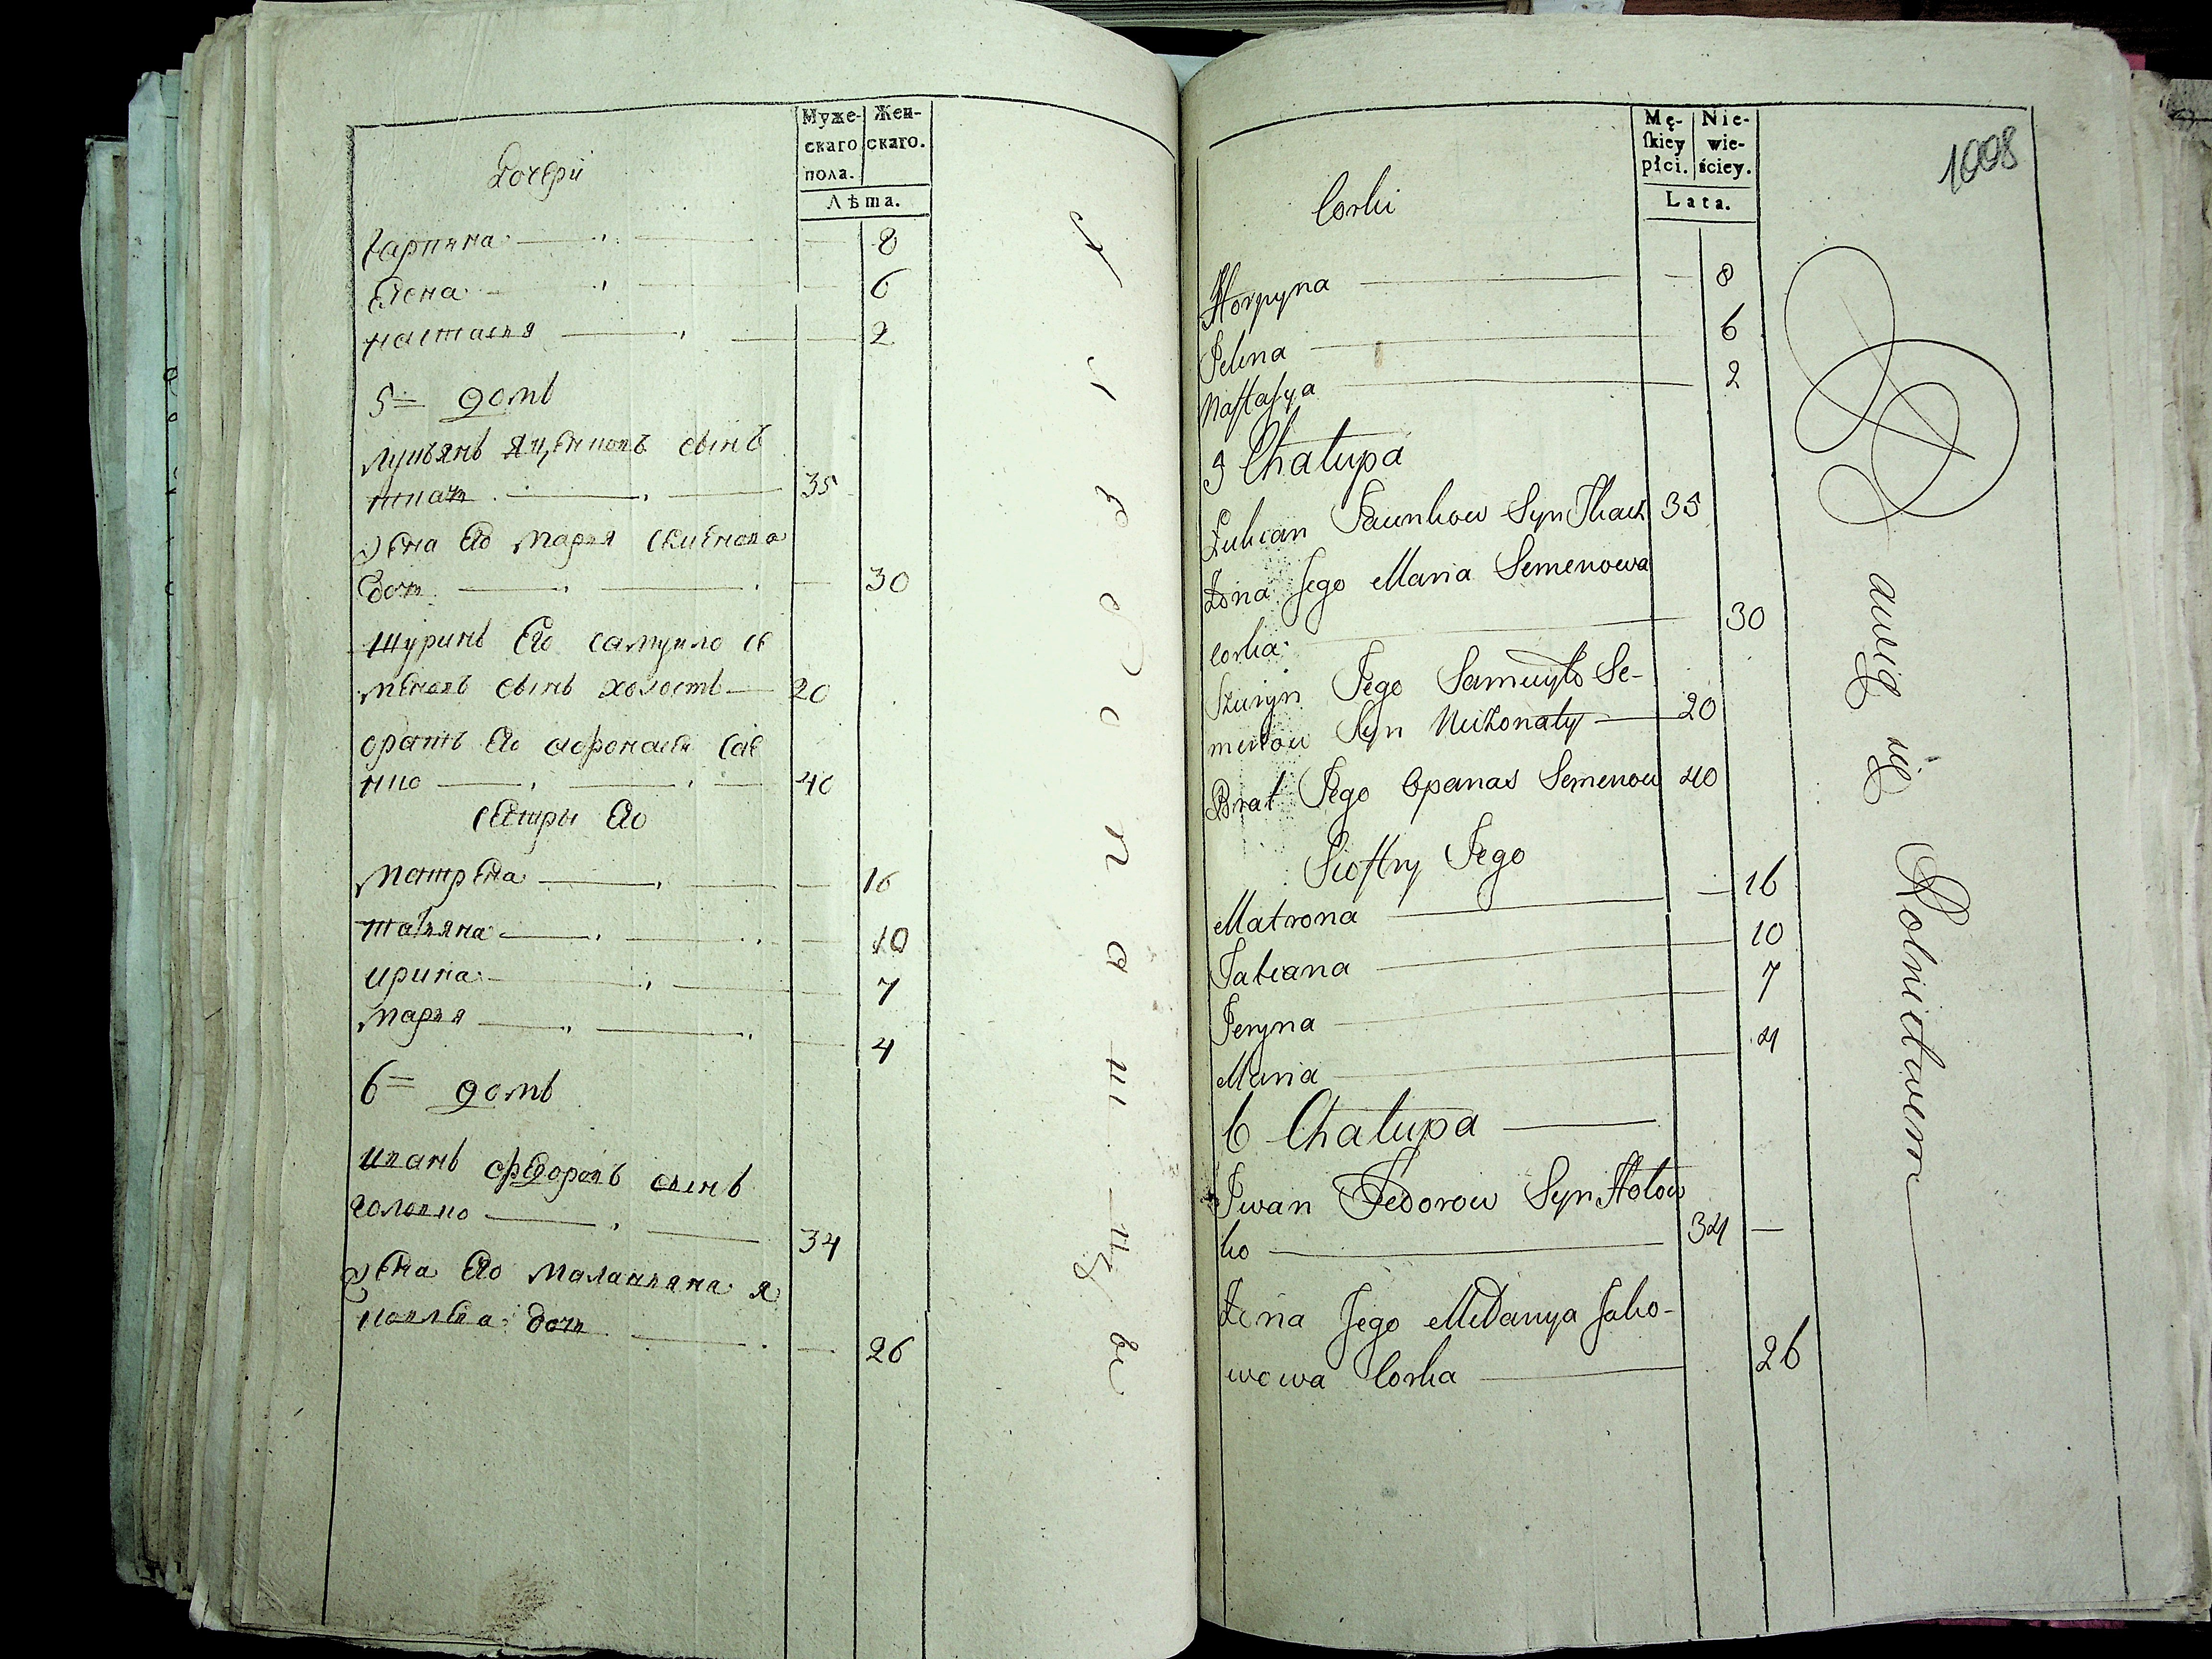 Муже-
скаго
пола.
Жен-
скаго.
Лѣта.
Дочери
Гарпина 8
Елена 6
настасия 2
5 = домъ
лукъянъ Яценковъ сынъ
ткачъ 35
жена Его Мария семенова
дочь 30
шуринъ Его самуило се
меновъ сынъ холостъ 20
братъ Его афонасей Сав
нко 40
сестры Его
Матрена 16
татьяна 10
ирина 7
мария 4
6 = домъ
иванъ федоровъ сынъ
головко 34
жена Его Маланьяна я
ковлева дочь 26
Mę-
ſkiey
płci.
Nie-
wie-
ściey.
Lata.
1008
Corki
Horpyna 8
Jelena 6
Naſtaſya 2
5 Chałupa
Łukian Jacunkow Syn Tkacz 35
Żona Jego Maria Semenowa
corka 30
Szuryn Jego Samuyło Se-
menow Syn Nieżonaty 20
Brat Jego Opanas Semenow 40
Sioſtry Jego
Matrona 16
Tatiana 10
Jeryna 7
Maria 4
6 Chałupa
Jwan Fedorow Syn Hołow
ko 34
Żona Jego Mełanya Jako-
wowa Corka 26
awią się Rolnictwem